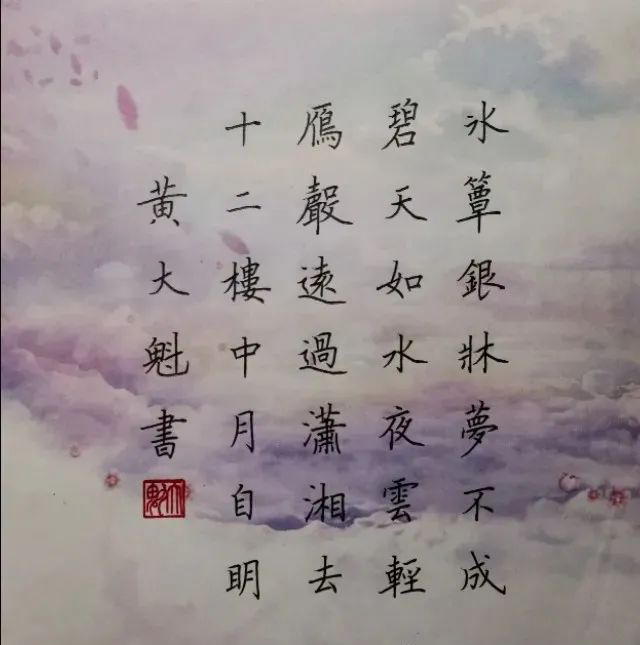 冰簟銀牀夢不成
碧天如水夜雲輕
鴈聲遠過瀟湘去
十二樓中月自明
黄大魁書